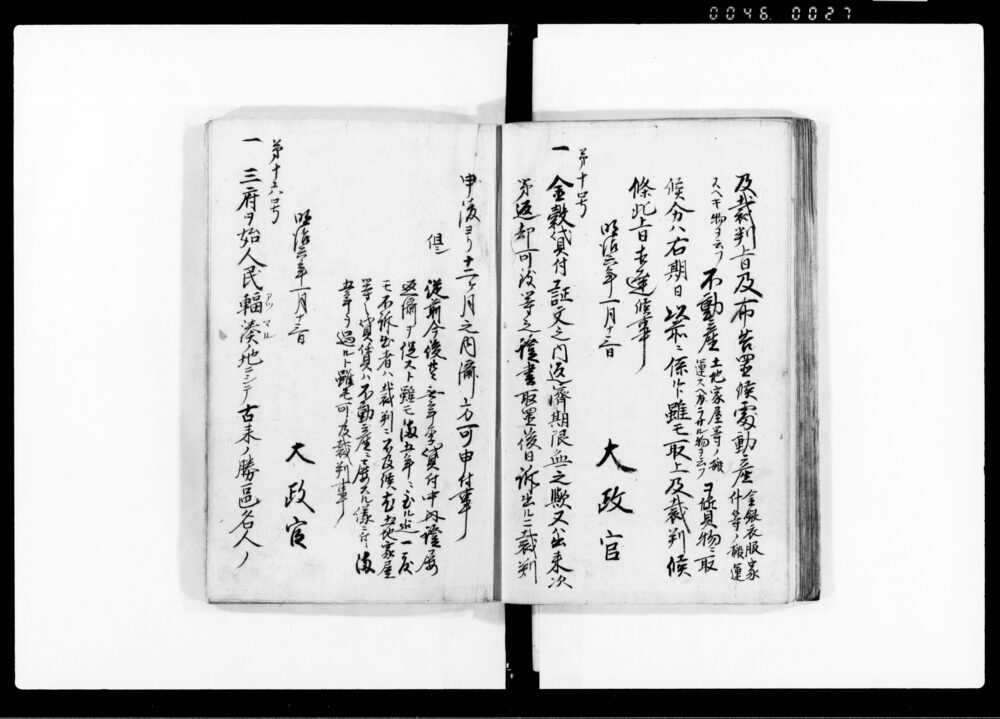 0046. 0027
及裁判上旨及布告置候處動産金銀衣服家什等ノ類運
スヘキ物ヲ云フ不動産土地家屋等ノ類運スヘカラサル物ヲ云フヲ詰貰物ニ取
候分ハ右期日以前ニ係ルト雖モ取上及裁判候
條此上旨相達候事
明治六年一月十三日
太政官
第十号
一金穀貸付証文之内返済期限無之歟又ハ出来次
第返却可致等之證書取置後日訴出ルニ裁判
申渡ヨリ十二ヶ月之内済方可申付事
但
從前今後共無年季貸付中以證屡
返済ヲ促スト雖モ満五年ニ至ル迄一度
モ不訴出者ハ裁判ニ不及候尤土地家屋
等之貸借ハ不動産ニ属スル儀ニ付満
五年ヲ過ルト雖モ可及裁判事
明治六年一月十三日
太政官
第十六号
一三府ヲ始人民輻湊ノ地ニシテ古来ノ勝區名人ノ
アツマル